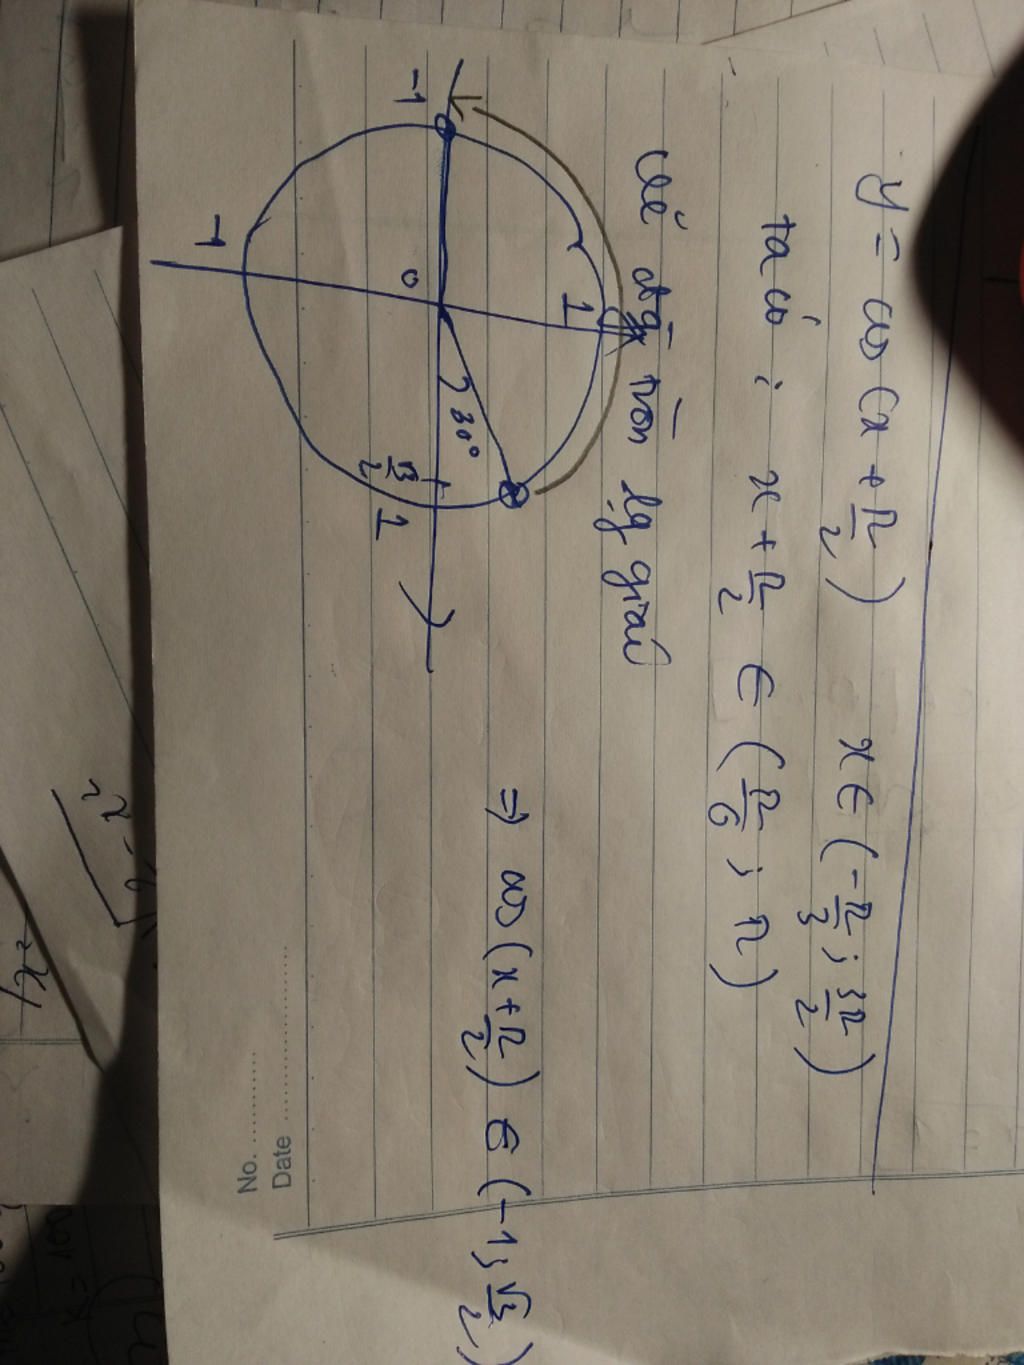 y = cos (x + π/2) x ∈ (-π/3 ; 3π/2)
ta có : x + π/2 ∈ (π/6 ; π)
vẽ đg tròn lg giác
-1
1
30°
0
√3/2
1
-1
⇒ cos (x + π/2) ∈ (-1 ; √3/2)
No. ............
Date ........................